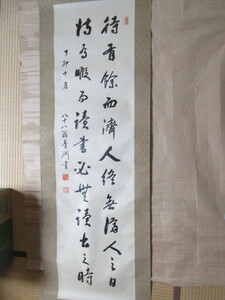 待有餘而濟人終無濟人之日
待有暇而讀書必無讀書之時
丁卯十月
八十八翁青洲書